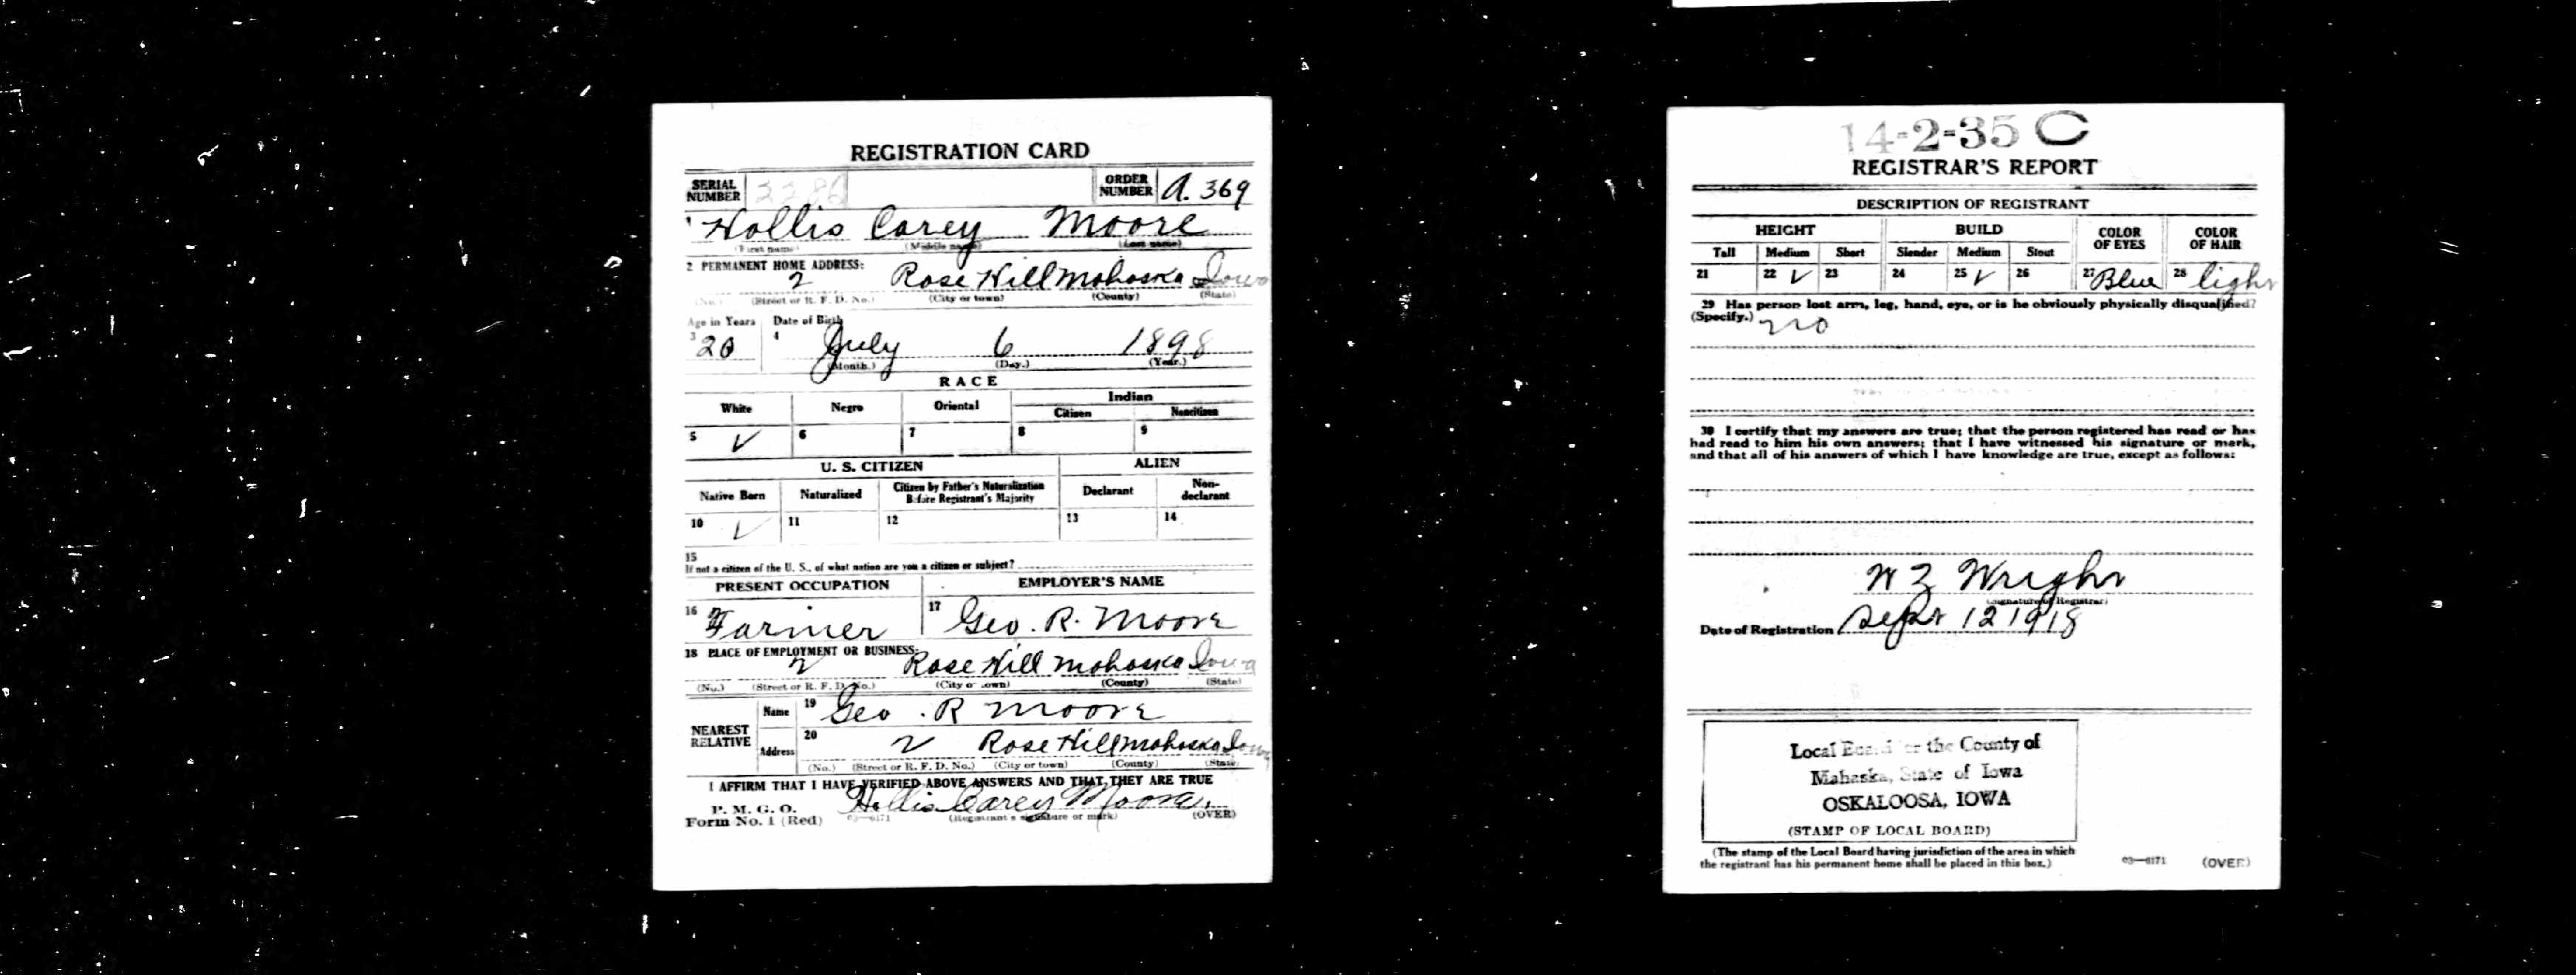 REGISTRATION CARD
SERIAL NUMBER 3286 ORDER NUMBER A. 369
1 Hollis Carey Moore
(First name) (Middle name) (Last name)
2 PERMANENT HOME ADDRESS:
2 Rose Hill Mahaska Iowa
(No.) (Street or R. F. D. No.) (City or town) (County) (State)
Age in Years Date of Birth
3 20 4 July 6 1898
(Month.) (Day.) (Year.)
RACE
White Negro Oriental Indian
Citizen Noncitizen
5 ✓ 6 7 8 9
U. S. CITIZEN ALIEN
Native Born Naturalized Citizen by Father's Naturalization Before Registrant's Majority Declarant Non-declarant
10 ✓ 11 12 13 14
15
If not a citizen of the U. S., of what nation are you a citizen or subject?
PRESENT OCCUPATION EMPLOYER'S NAME
16 Farmer 17 Geo. R. Moore
18 PLACE OF EMPLOYMENT OR BUSINESS:
2 Rose Hill Mahaska Iowa
(No.) (Street or R. F. D. No.) (City or town) (County) (State)
NEAREST RELATIVE
Name 19 Geo. R Moore
Address 20 2 Rose Hill Mahaska Iowa
(No.) (Street or R. F. D. No.) (City or town) (County) (State)
I AFFIRM THAT I HAVE VERIFIED ABOVE ANSWERS AND THAT THEY ARE TRUE
P. M. G. O.
Form No. 1 (Red) 03—6171 Hollis Carey Moore.
(Registrant's signature or mark) (OVER)
14-2-35 C
REGISTRAR'S REPORT
DESCRIPTION OF REGISTRANT
HEIGHT BUILD COLOR OF EYES COLOR OF HAIR
Tall Medium Short Slender Medium Stout
21 22 ✓ 23 24 25 ✓ 26 27 Blue 28 light
29 Has person lost arm, leg, hand, eye, or is he obviously physically disqualified?
(Specify.) no
30 I certify that my answers are true; that the person registered has read or has
had read to him his own answers; that I have witnessed his signature or mark,
and that all of his answers of which I have knowledge are true, except as follows:
W Z Wright
(Signature of Registrar)
Date of Registration Sept 12 1918
Local Board for the County of
Mahaska, State of Iowa
OSKALOOSA, IOWA
(STAMP OF LOCAL BOARD)
(The stamp of the Local Board having jurisdiction of the area in which
the registrant has his permanent home shall be placed in this box.)
03—6171 (OVER)